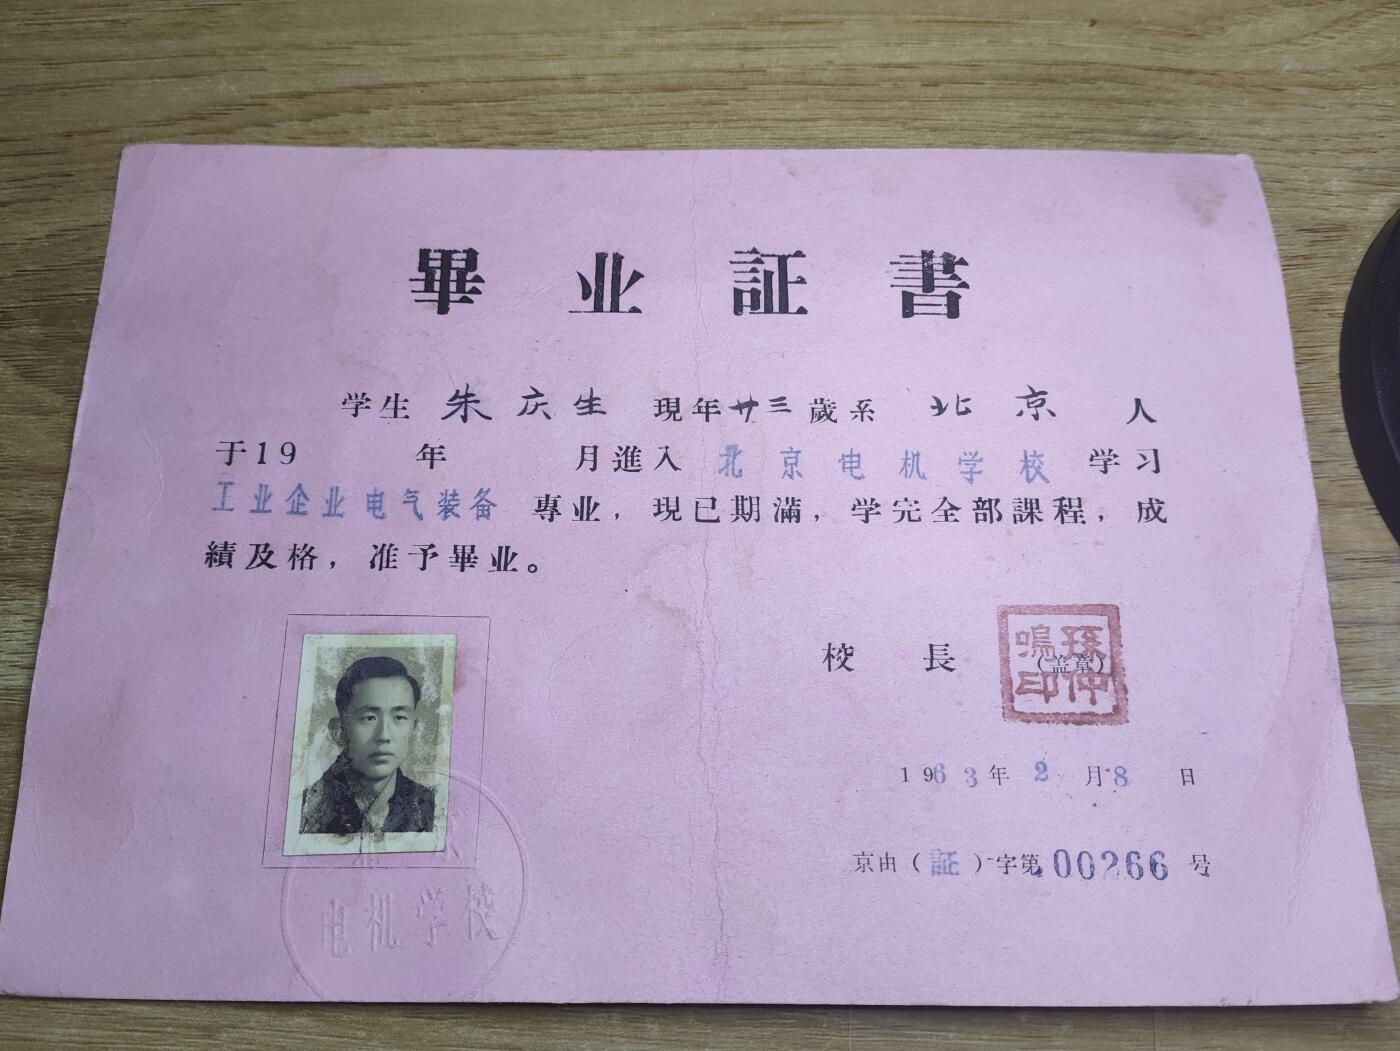 畢业証書
学生 朱庆生 現年廿三歲系 北京 人
于19 年 月進入 北京电机学校 学习
工业企业电气装备 專业，現已期滿，学完全部課程，成
績及格，准予畢业。
校 長 （盖章）
孫仲鳴印
1963年 2 月 8 日
京由（証）字第00266 号
电机学校